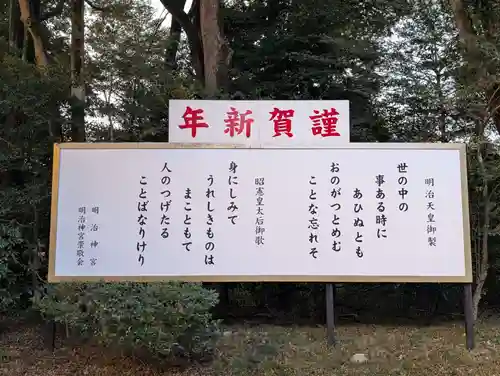 謹賀新年
明治天皇御製
世の中の
事ある時に
あひぬとも
おのがつとめむ
ことな忘れそ
昭憲皇太后御歌
身にしみて
うれしきものは
まこともて
人のつげたる
ことばなりけり
明治神宮
明治神宮崇敬会